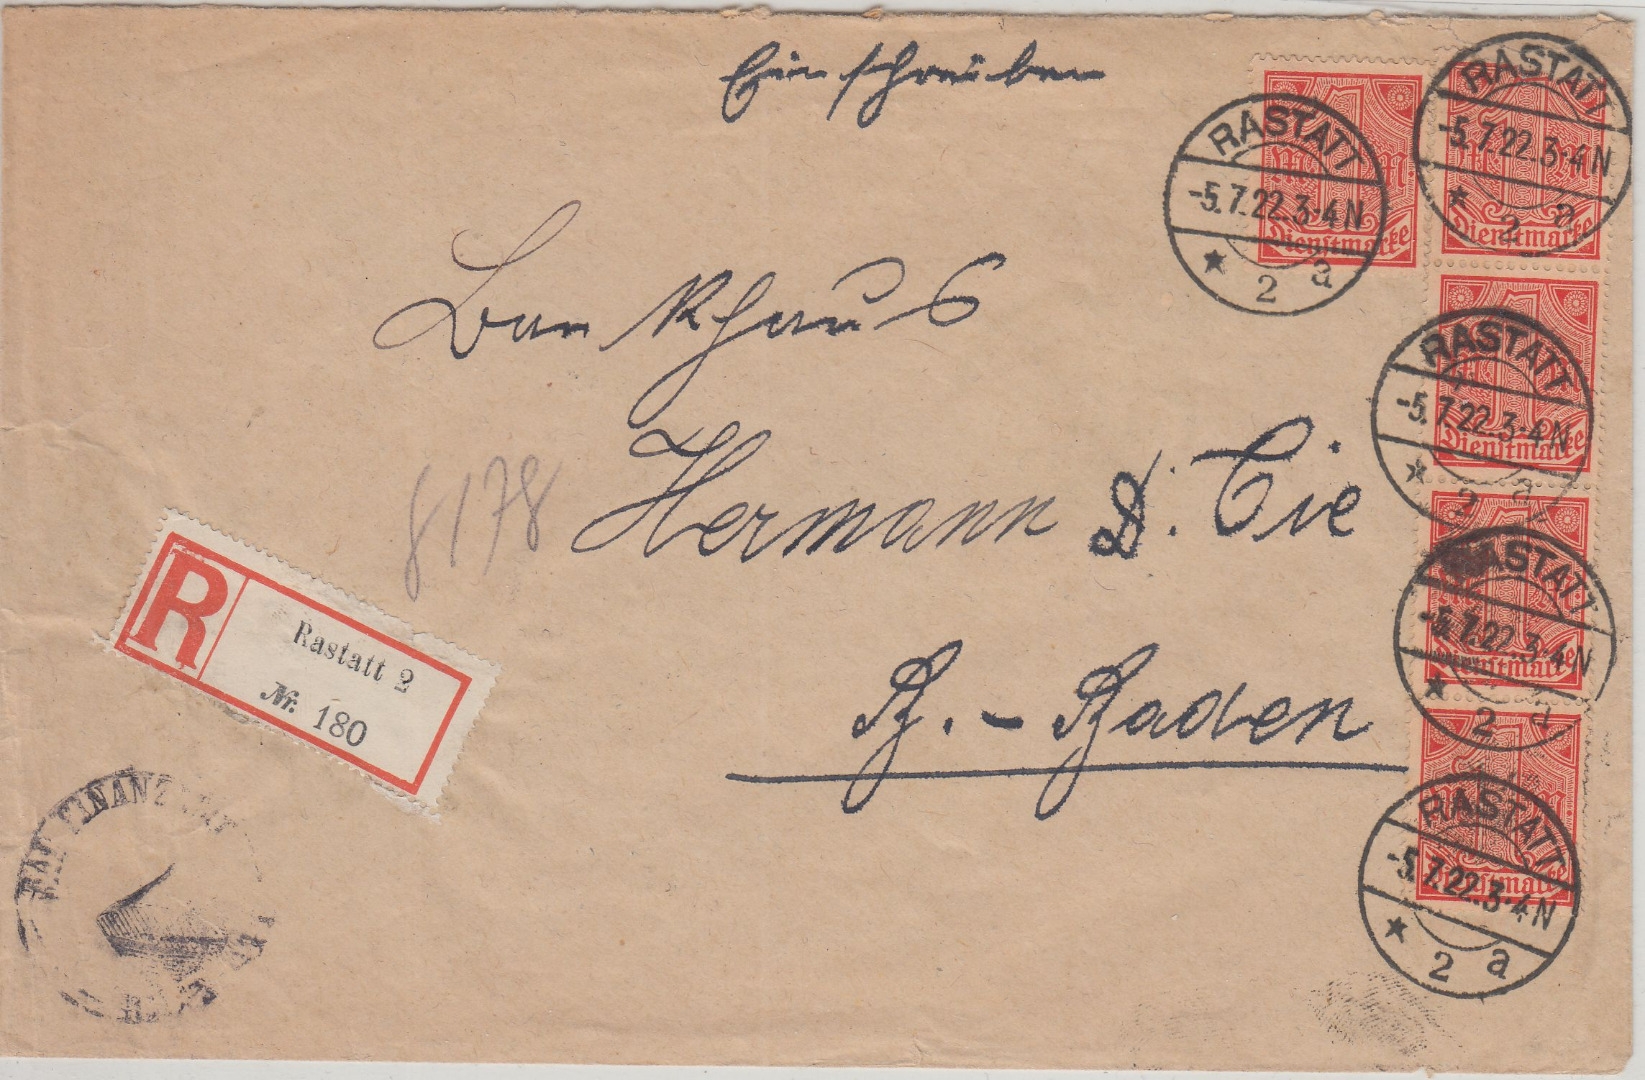 Einschreiben
RASTATT
-5.7.22.3-4N
* 2 a
1
M M
Dienstmarke
RASTATT
-5.7.22.3-4N
* 2 a
1
M M
Dienstmarke
Bankhaus
RASTATT
-5.7.22.3-4N
* 2 a
1
Dienstmarke
Hermann & Cie
8178
RASTATT
-5.7.22.3-4N
* 2 a
1
Dienstmarke
R
Rastatt 2
Nr. 180
B.-Baden
RASTATT
-5.7.22.3-4N
* 2 a
1
Dienstmarke
FINANZ